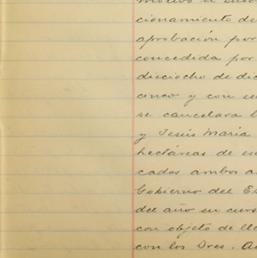 cionamiento de
aprobación por
concedida por
dieciocho de dic
cinco y con se
se cancelara l
y Jesús María
hectáreas de
cados ambos a
Gobierno del Es
del año en curs
con objeto de lle
con los Dres. A